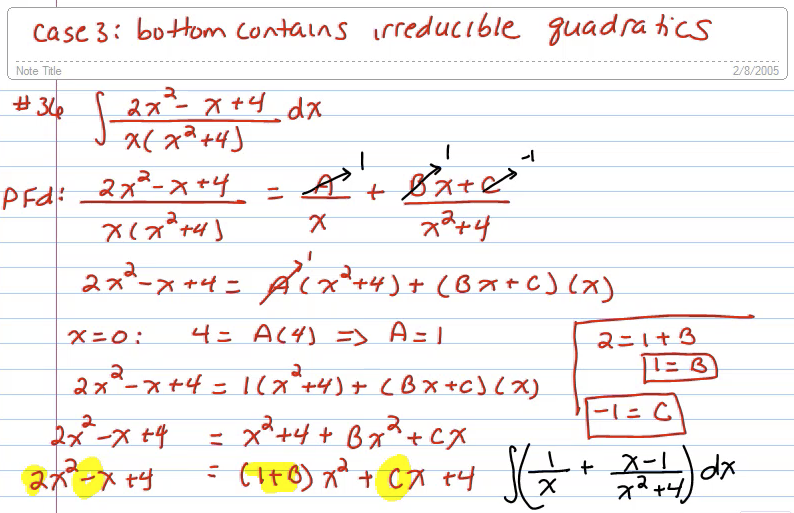 case 3: bottom contains irreducible quadratics
Note Title 2/8/2005
#36 ∫ (2x² - x + 4)/(x(x²+4)) dx
PFd: (2x² - x + 4)/(x(x²+4)) = A/x + (Bx + C)/(x²+4)
1 1 -1
2x² - x + 4 = A(x²+4) + (Bx + C)(x)
1
x = 0: 4 = A(4) => A = 1
2x² - x + 4 = 1(x²+4) + (Bx + C)(x)
2x² - x + 4 = x² + 4 + Bx² + Cx
2x² - x + 4 = (1+B)x² + Cx + 4
2 = 1 + B
1 = B
-1 = C
∫(1/x + (x-1)/(x²+4)) dx